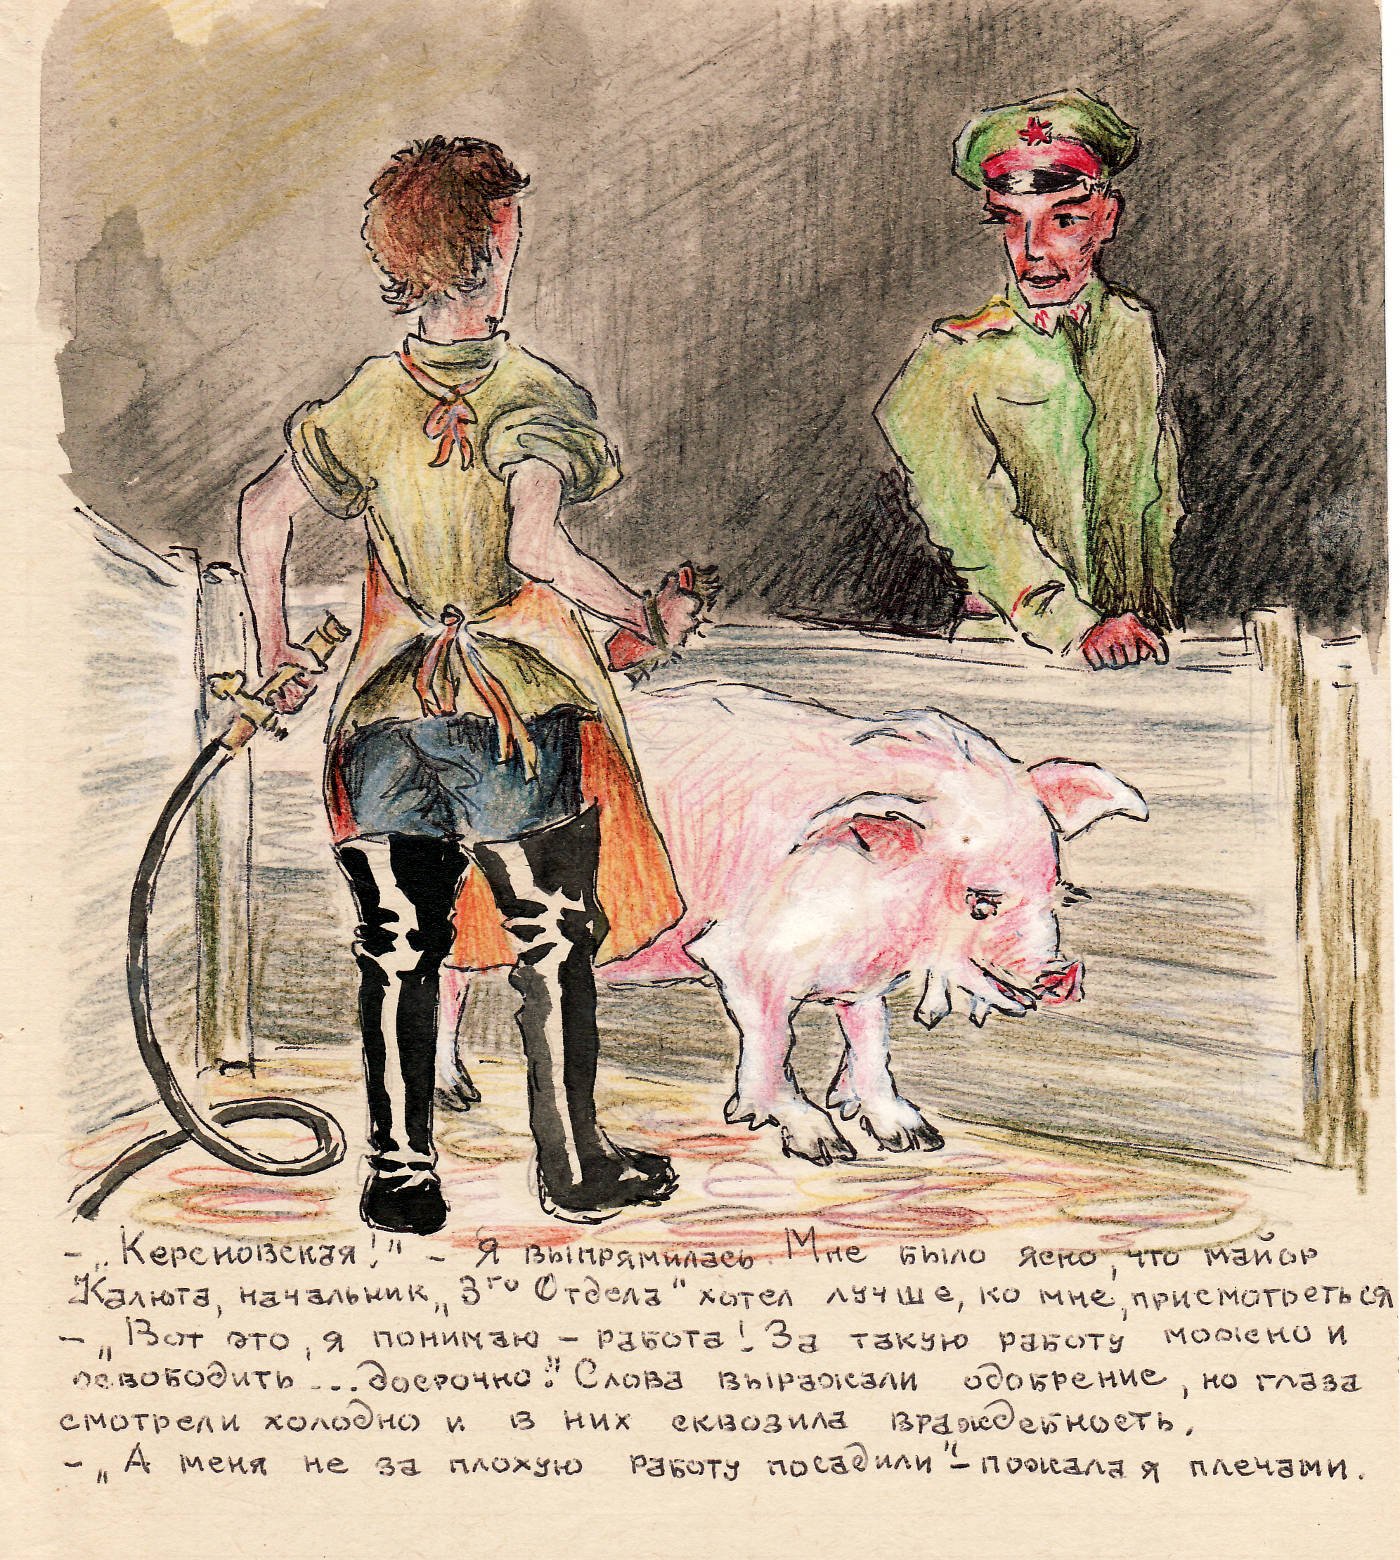 – „Керсновская!" – Я выпрямилась. Мне было ясно, что майор
Калюта, начальник „3го Отдела" хотел лучше, ко мне, присмотреться
– „Вот это, я понимаю – работа! За такую работу можно и
освободить... досрочно." Слова выражали одобрение, но глаза
смотрели холодно и в них сквозила враждебность.
– „А меня не за плохую работу посадили" – пожала я плечами.